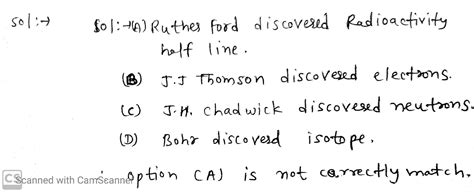 sol:→ Sol:→(A) Rutherford discovered Radioactivity
half line.
(B) J.J Thomson discovered electrons.
(C) J.H. chadwick discovered neutrons.
(D) Bohr discoverd isotope.
option (A) is not correctly match.
CS Scanned with CamScanner